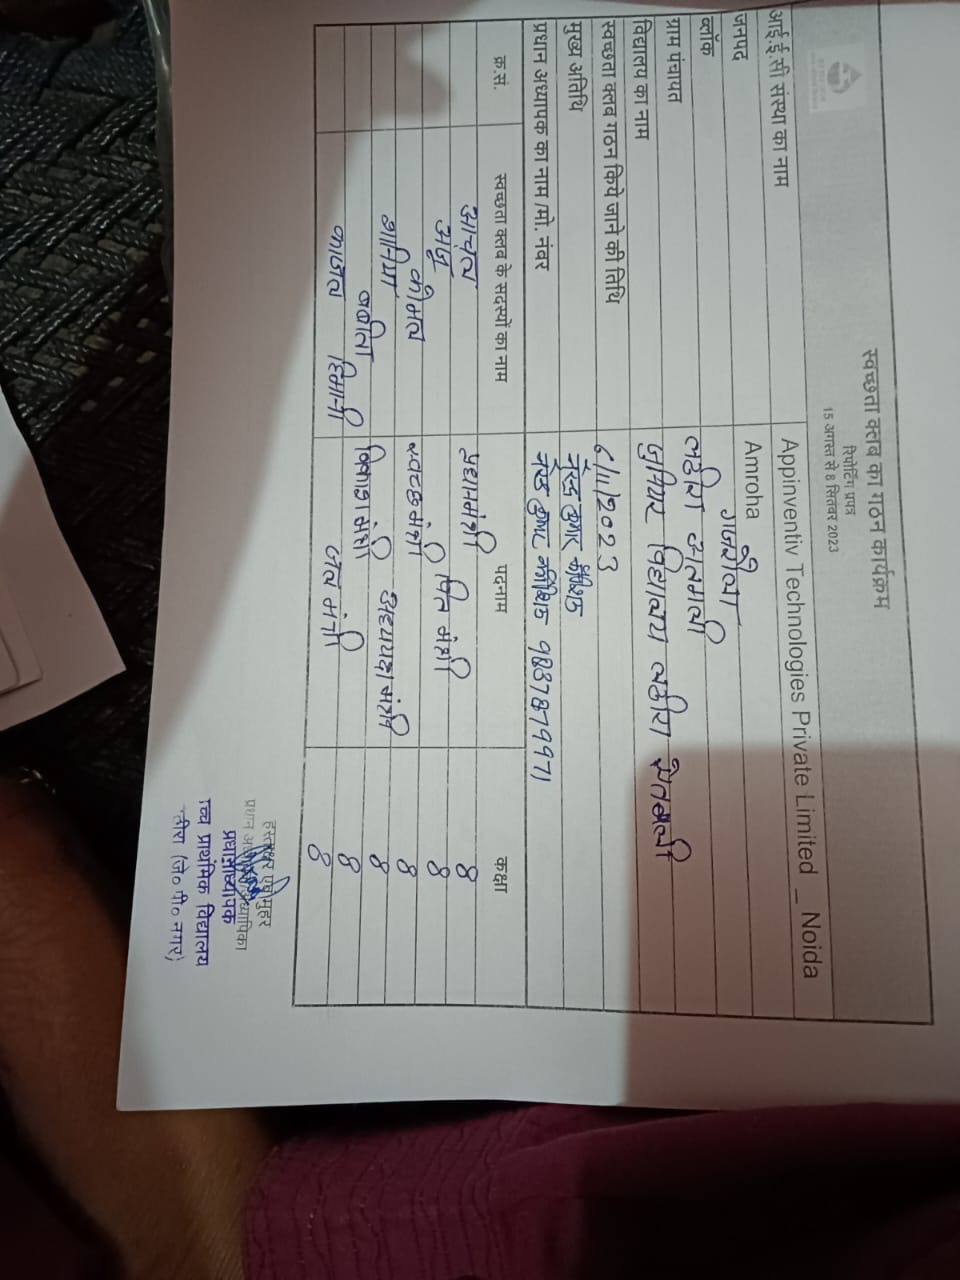 स्वच्छता क्लब का गठन कार्यक्रम
रिपोर्टिंग प्रपत्र
15 अगस्त से 8 सितंबर 2023
आई.ई.सी संस्था का नाम Appinventiv Technologies Private Limited _ Noidа
जनपद Amroha
ब्लॉक गजरौला
ग्राम पंचायत
विद्यालय का नाम जूनियर विद्यालय
स्वच्छता क्लब गठन किये जाने की तिथि 6/11/2023
मुख्य अतिथि नरेन्द्र कुमार कौशिक
प्रधान अध्यापक का नाम /मो. नंबर नरेन्द्र कुमार कौशिक
क्र.सं. स्वच्छता क्लब के सदस्यों का नाम पदनाम कक्षा
आंचल प्रधानमंत्री 8
अंजू वित्त मंत्री 8
कोमल स्वच्छ मंत्री 8
8
बबीता शिक्षा मंत्री 8
काजल हिमानी जल मंत्री 8
हस्ताक्षर एवं मुहर
प्रधानाध्यापक
उच्च प्राथमिक विद्यालय
(जे० पी० नगर)